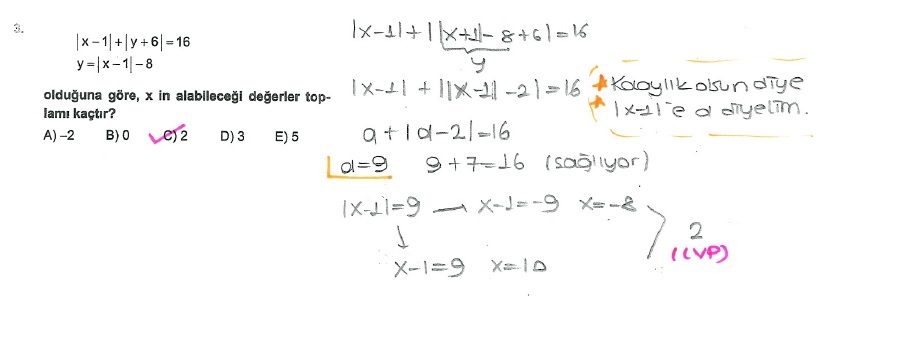 3.
|x-1|+|y+6|=16
y=|x-1|-8
olduğuna göre, x in alabileceği değerler top-
lamı kaçtır?
A) -2 B) 0 C) 2 D) 3 E) 5
|x-1|+||x+1|-8+6|=16
y
|x-1|+||x-1|-2|=16
Kolaylık olsun diye
|x-1|'e a diyelim.
a+|a-2|=16
a=9 9+7=16 (sağlıyor)
|x-1|=9 — x-1=-9 x=-8
↓
x-1=9 x=10
2
(CVP)